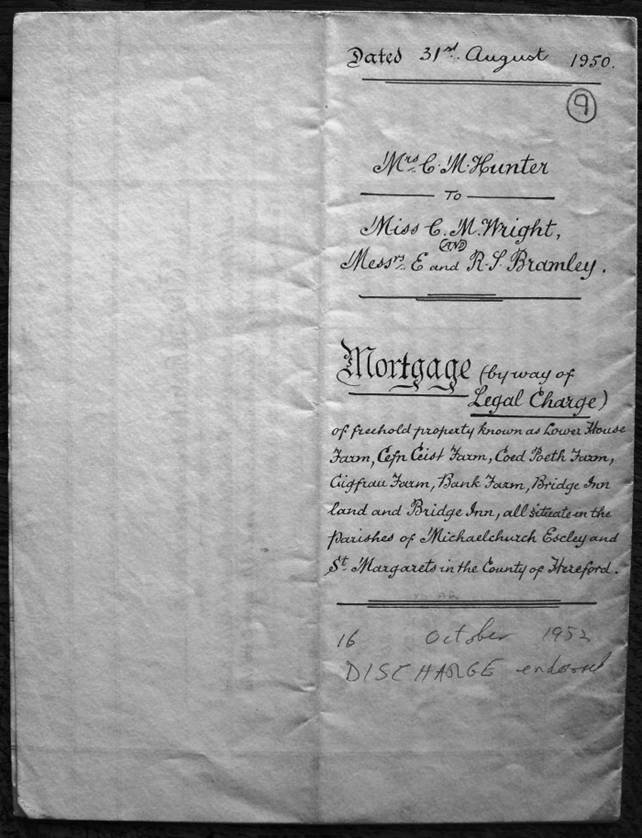 Dated 31st August 1950.
9
Mrs. C. M. Hunter
To
Miss C. M. Wright,
AND
Messrs. E and R. S. Bramley.
Mortgage (by way of
Legal Charge)
of freehold property known as Lower House
Farm, Cefn Ceist Farm, Coed Poeth Farm,
Cigfrau Farm, Bank Farm, Bridge Inn
land and Bridge Inn, all situate in the
parishes of Michaelchurch Escley and
St. Margarets in the County of Hereford.
16 October 1952
DISCHARGE endorsed